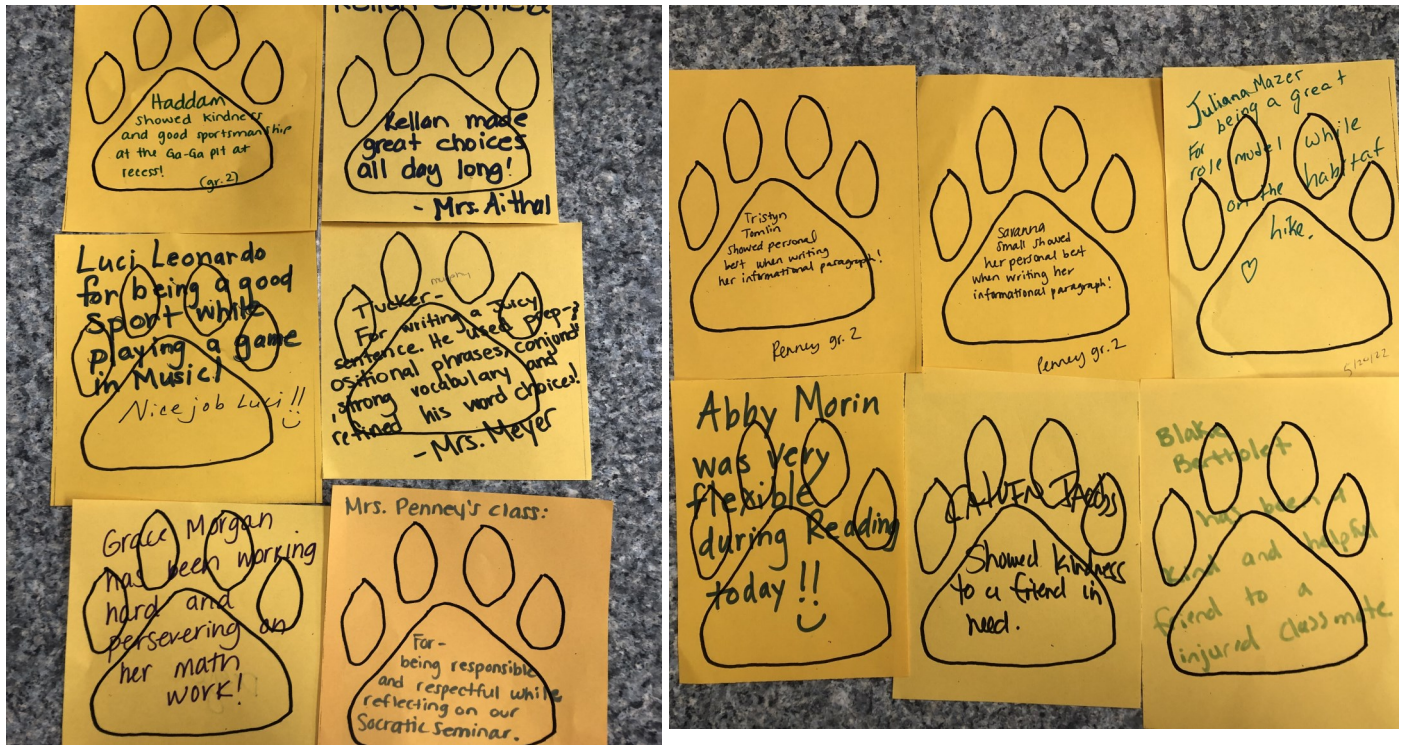 Haddam
showed kindness
and good sportsmanship
at the Ga-Ga pit at
recess!
(gr. 2)
Kellan
Kellan made
great choices
all day long!
- Mrs. Aithal
Luci Leonardo
for being a good
sport while
playing a game
in Music!
Nice job Luci!!
Tucker- murphy
For writing a juicy
sentence. He used prep-
ositional phrases, conjunct?
, strong vocabulary and
refined his word choices!
- Mrs. Meyer
Grace Morgan
has been working
hard and
persevering on
her math
work!
Mrs. Penney's class:
For-
being responsible
and respectful while
reflecting on our
Socratic Seminar.
Tristyn
Tomlin
showed personal
best when writing
her informational paragraph!
Penney gr. 2
Savanna
Small showed
her personal best
when writing her
informational paragraph!
Penney gr. 2
Juliana Mazer
For being a great
role model while
on the habitat
hike.
5/24/22
Abby Morin
was very
flexible
during Reading
today!!
CALVIN JACOBS
Showed kindness
to a friend in
need.
Blake
Bertholet
has been a
kind and helpful
friend to a
injured classmate